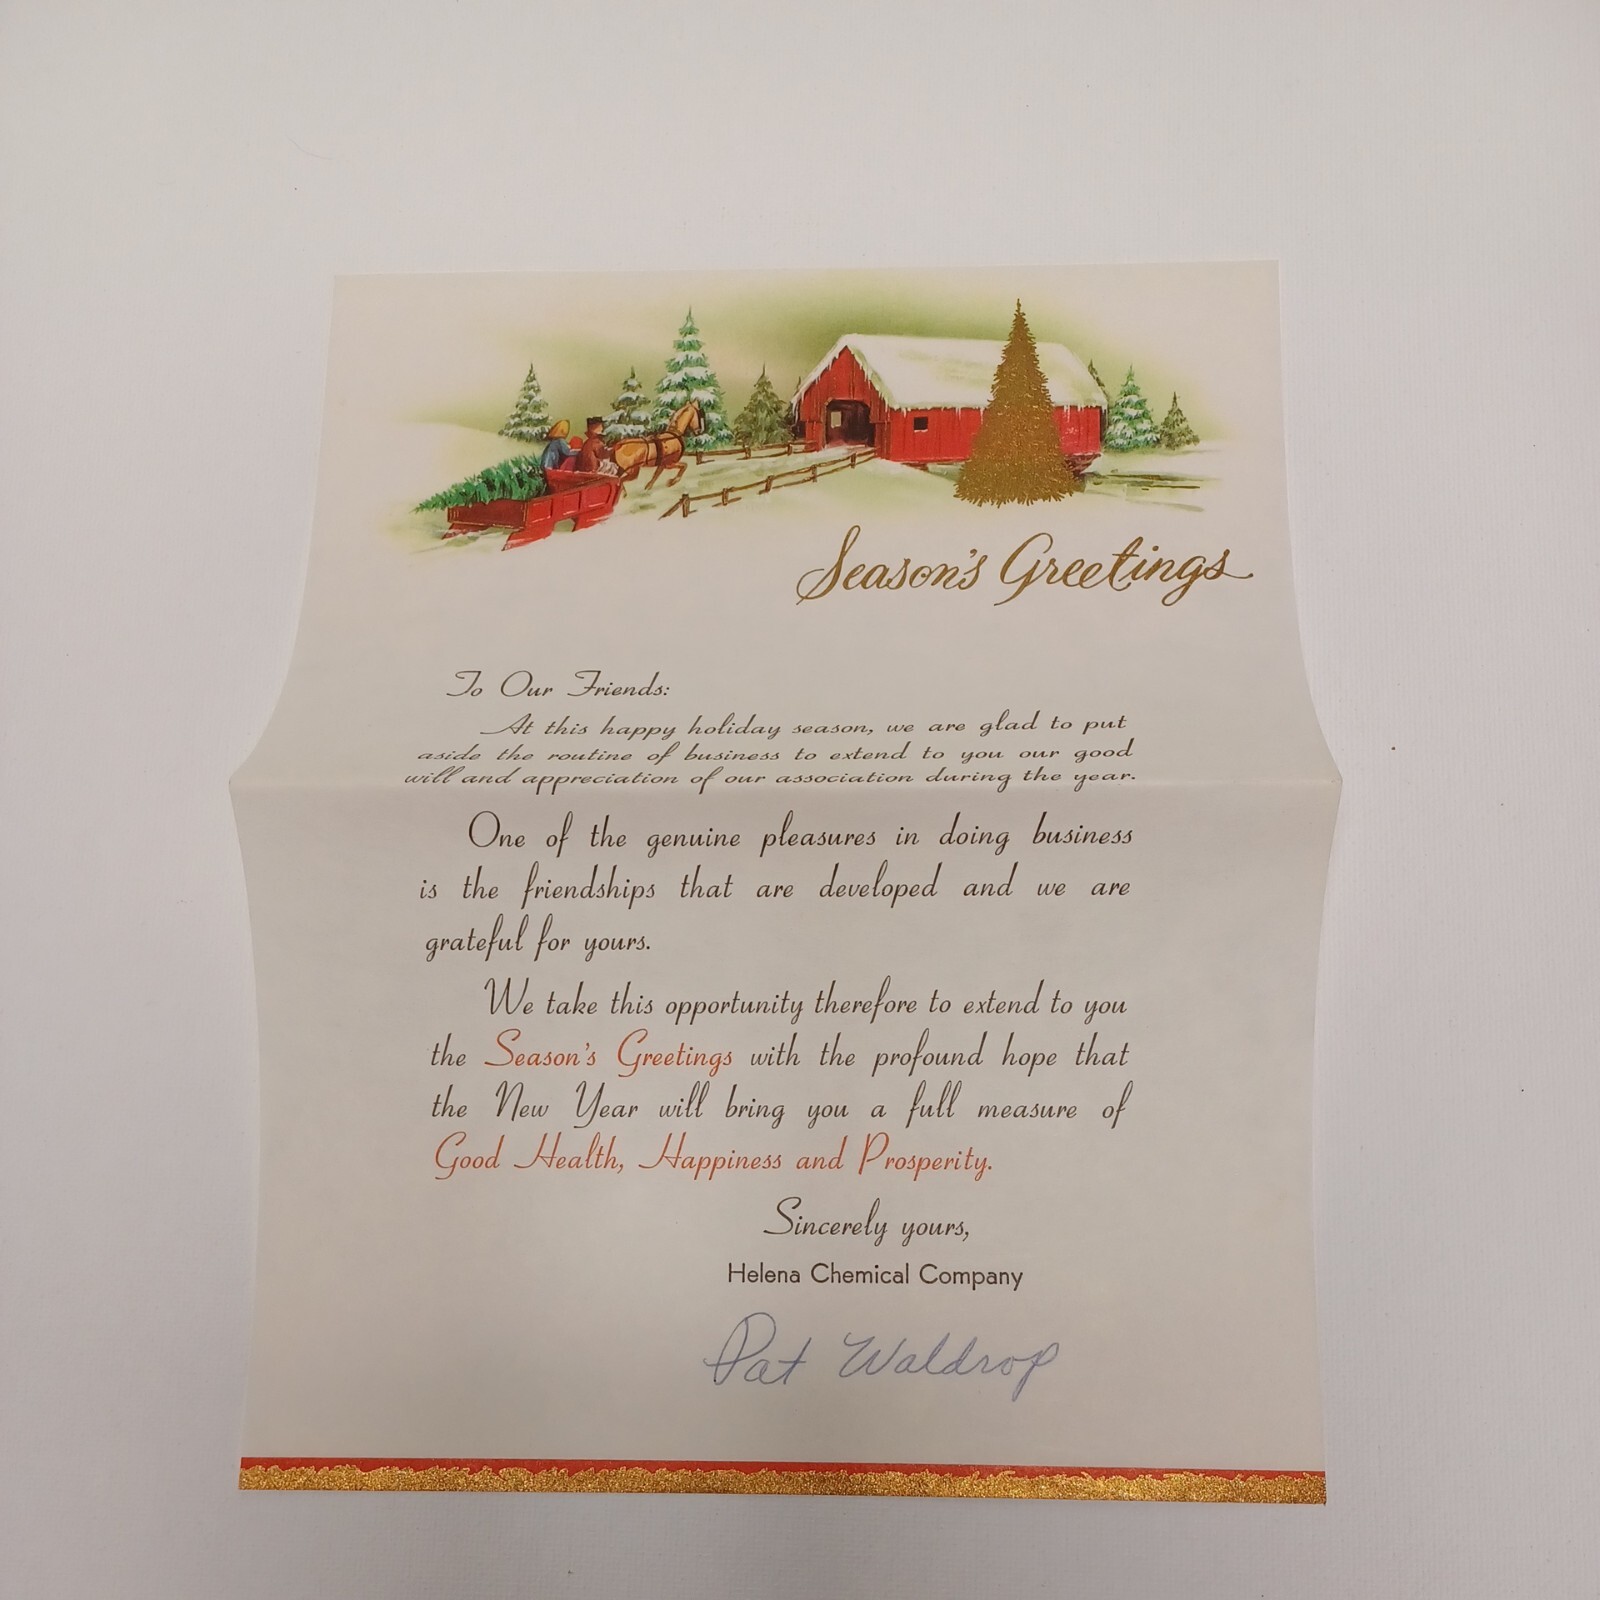 Season's Greetings
To Our Friends:
At this happy holiday season, we are glad to put
aside the routine of business to extend to you our good
will and appreciation of our association during the year.
One of the genuine pleasures in doing business
is the friendships that are developed and we are
grateful for yours.
We take this opportunity therefore to extend to you
the Season's Greetings with the profound hope that
the New Year will bring you a full measure of
Good Health, Happiness and Prosperity.
Sincerely yours,
Helena Chemical Company
Pat Waldrop